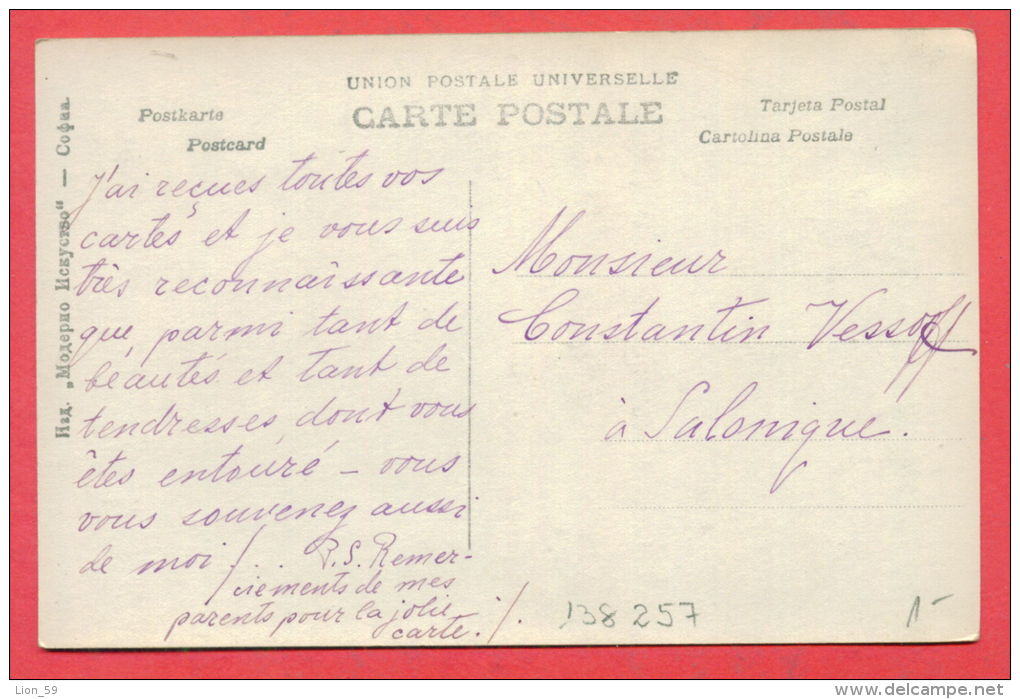 UNION POSTALE UNIVERSELLE
CARTE POSTALE
Postkarte
Postcard
Tarjeta Postal
Cartolina Postale
Изд. „Модерно Искуство“ — Софиа.
J'ai reçues toutes vos
cartes et je vous suis
très reconnaissante
que, parmi tant de
beautés et tant de
tendresses dont vous
êtes entouré – vous
vous souvenez aussi
de moi!...
P.S. Remer-
ciements de mes
parents pour la jolie
carte.!.
Monsieur
Constantin Vessoff
à Salonique.
138257
1-
Lion_59
delcampe.net